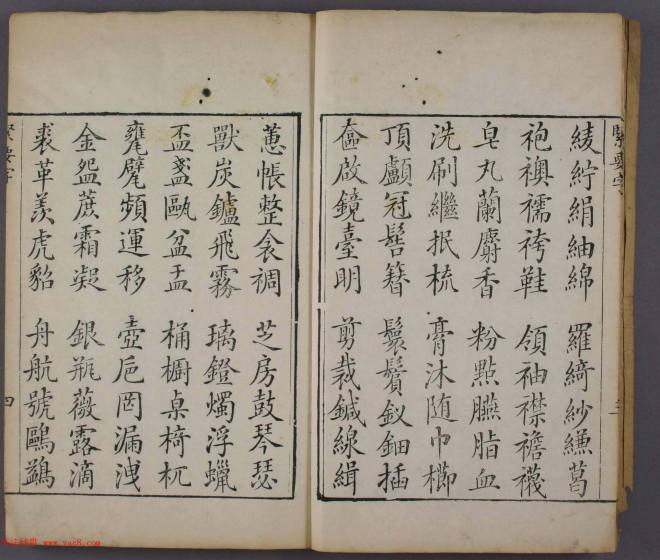 緊要字
三
綾紵絹紬綿 羅綺紗縑葛
袍襖襦袴鞋 領袖襟襜襪
皂丸蘭麝香 粉點臙脂血
洗刷繼抿梳 膏沐随巾櫛
頂顱冠髻簪 鬟鬢釵鈿插
奩啟鏡臺明 剪裁鍼線緝
蕙帳整衾裯 芝房鼓琴瑟
獸炭鑪飛霧 璃鐙燭浮蠟
盃盞甌盆盂 桶櫥桌椅杌
甕甓頻運移 壺卮罔漏洩
金盌蔗霜凝 銀瓶薇露滴
裘革羨虎貂 舟航號鷗鷁
緊要字
四
www.yac8.com